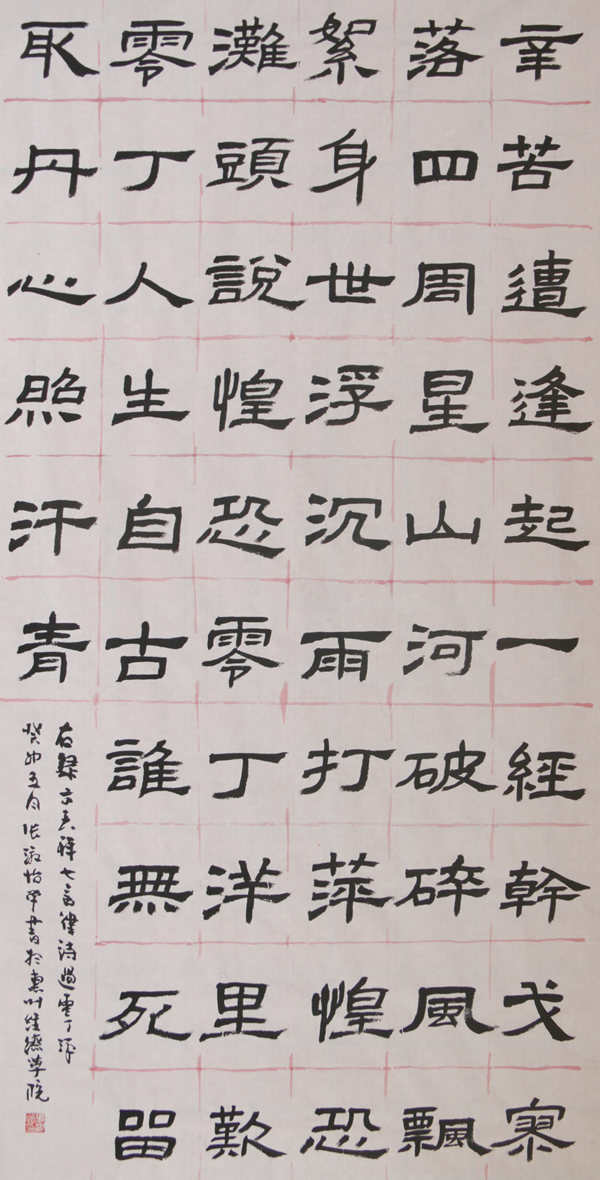 辛苦遭逢起一經幹戈寥
落四周星山河破碎風飄
絮身世浮沉雨打萍惶恐
灘頭說惶恐零丁洋里歎
零丁人生自古誰無死留
取丹心照汗青
右録文天祥七言律诗過零丁洋
癸卯五月张淑怡書於惠州經濟學院